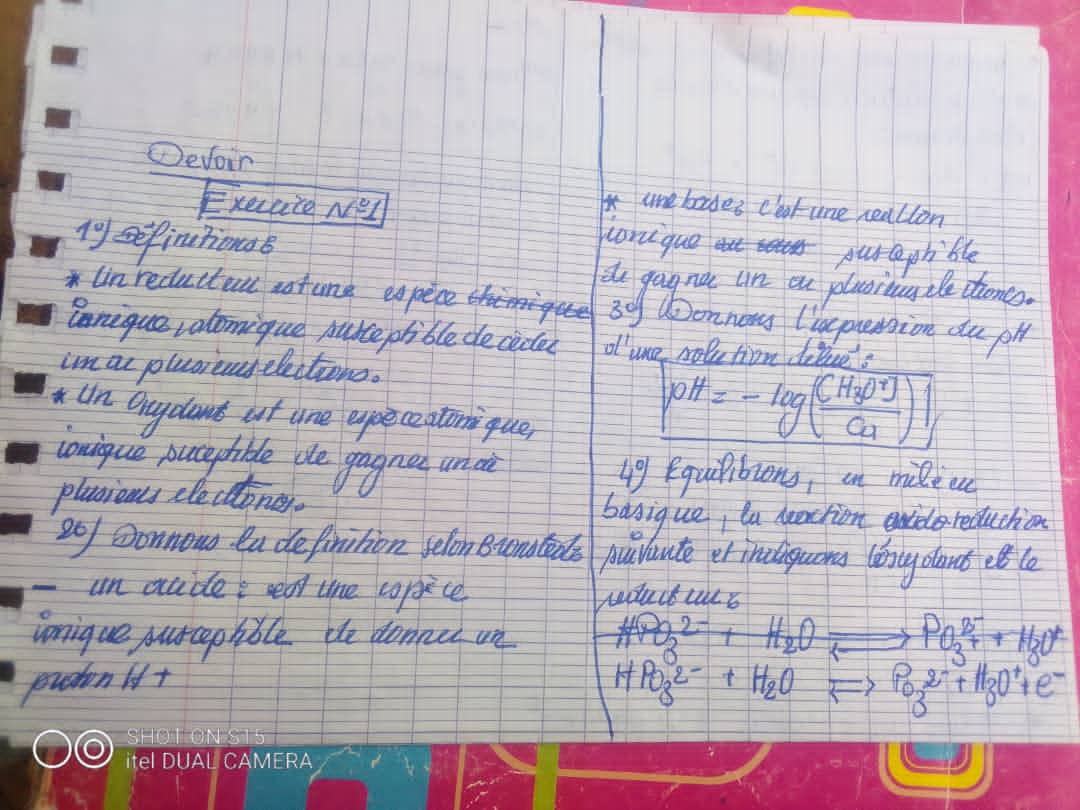 Devoir
Exercice N°1
1°) Définitions
* Un reducteur est une espèce chimique
ionique, atomique susceptible de céder
un ou plusieurs electrons.
* Un Oxydant est une espèce atomique,
ionique suceptible de gagner un ou
plusieurs electrones.
2°) Donnons la definition selon Bronsted:
- un acide : est une espèce
ionique susceptible de donner un
proton H+
* une base: c'est une reaction
ionique susceptible
de gagner un ou plusieurs electrones.
3°) Donnons l'expression du pH
d'une solution diluée :
pH = - log([H3O+]/Ca)
4°) Equilibrons, en milieu
basique, la reaction oxido-reduction
suivante et indiquons l'oxydant et le
reducteur:
HPO3^2- + H2O ⇌ PO3^3- + H3O+
HPO3^2- + H2O ⇌ PO3^2- + H3O+ + e-
SHOT ON S15
itel DUAL CAMERA